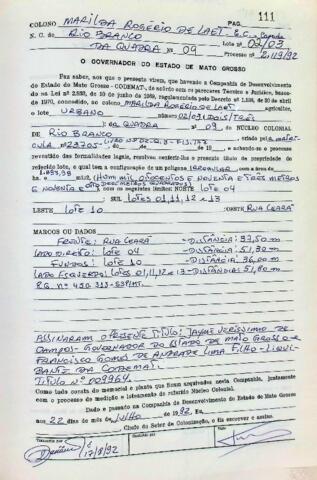 PAG. 111
COLONO MARILDA ROGÉRIO DE LAET, B.C. Capeda
N. C. do RIO BRANCO Lote nº 02/03
DA QUADRA Nº 09 Processo 2.119/92
O GOVERNADOR DO ESTADO DE MATO GROSSO
Faz saber, aos que o presente virem, que havendo a Companhia de Desenvolvimento
do Estado de Mato Grosso - CODEMAT, de acôrdo com os pareceres Técnico e Jurídico, baseado
na Lei nº de 10 de junho de 1969, regulamentada pelo Decreto nº de 20 de abril
de 1970, concedido ao colono MARILDA ROGÉRIO DE LAET, agricultor, o lote
URBANO nº 02/03 (DOIS/TRÊS
DA QUADRA Nº 09. DO NÚCLEO COLONIAL
DE RIO BRANCO criada pela MATRÍ-
CULA Nº 23705- LIVRO Nº de 19 e achando-se o processo
revestido das formalidades legais, resolveu conferir-lhe o presente título de propriedade do
referido lote, o qual tem a configuração de um polígono IRREGULAR com a área de
1.893,98 (HUM MIL, OITOCENTOS E NOVENTA E TRÊS METROS
E NOVENTA E OITO DECIMETROS QUADRADOS)
e com os seguintes limites: NORTE LOTE 04
SUL LOTES 01, 11, 12 E 13
LESTE LOTE 10 OESTE RUA CEARÁ
MARCOS OU DADOS
FRENTE: RUA CEARÁ - DISTÂNCIA: 37,50 m
LADO DIREITO: LOTE 04 - DISTÂNCIA: 51,30 m
FUNDOS: LOTE 10 - DISTÂNCIA: 36,00 m
LADO ESQUERDO: LOTES 01, 11, 12 E 13 - DISTÂNCIA: 51,80 m
R.G. nº
ASSINARAM O PRESENTE TÍTULO: JAYME VERISSIMO DE
CAMPOS - GOVERNADOR DO ESTADO DE MATO GROSSO E
FRANCISCO GOMES DE ANDRADE LIMA FILHO - LIQUI-
DANTE DA CODEMAT.
TÍTULO Nº 009964
Como tudo consta do memorial e planta que ficam arquivados nesta Companhia, juntamente
com o processo de medição e loteamento do referido Núcleo Colonial.
Dado e passado na Companhia de Desenvolvimento do Estado de Mato Grosso
aos 22 dias do mês de JULHO de 1992. Eu,
Chefe do Setor de Colonização, o fiz escrever e assino.
Transcrito por
17/8/92